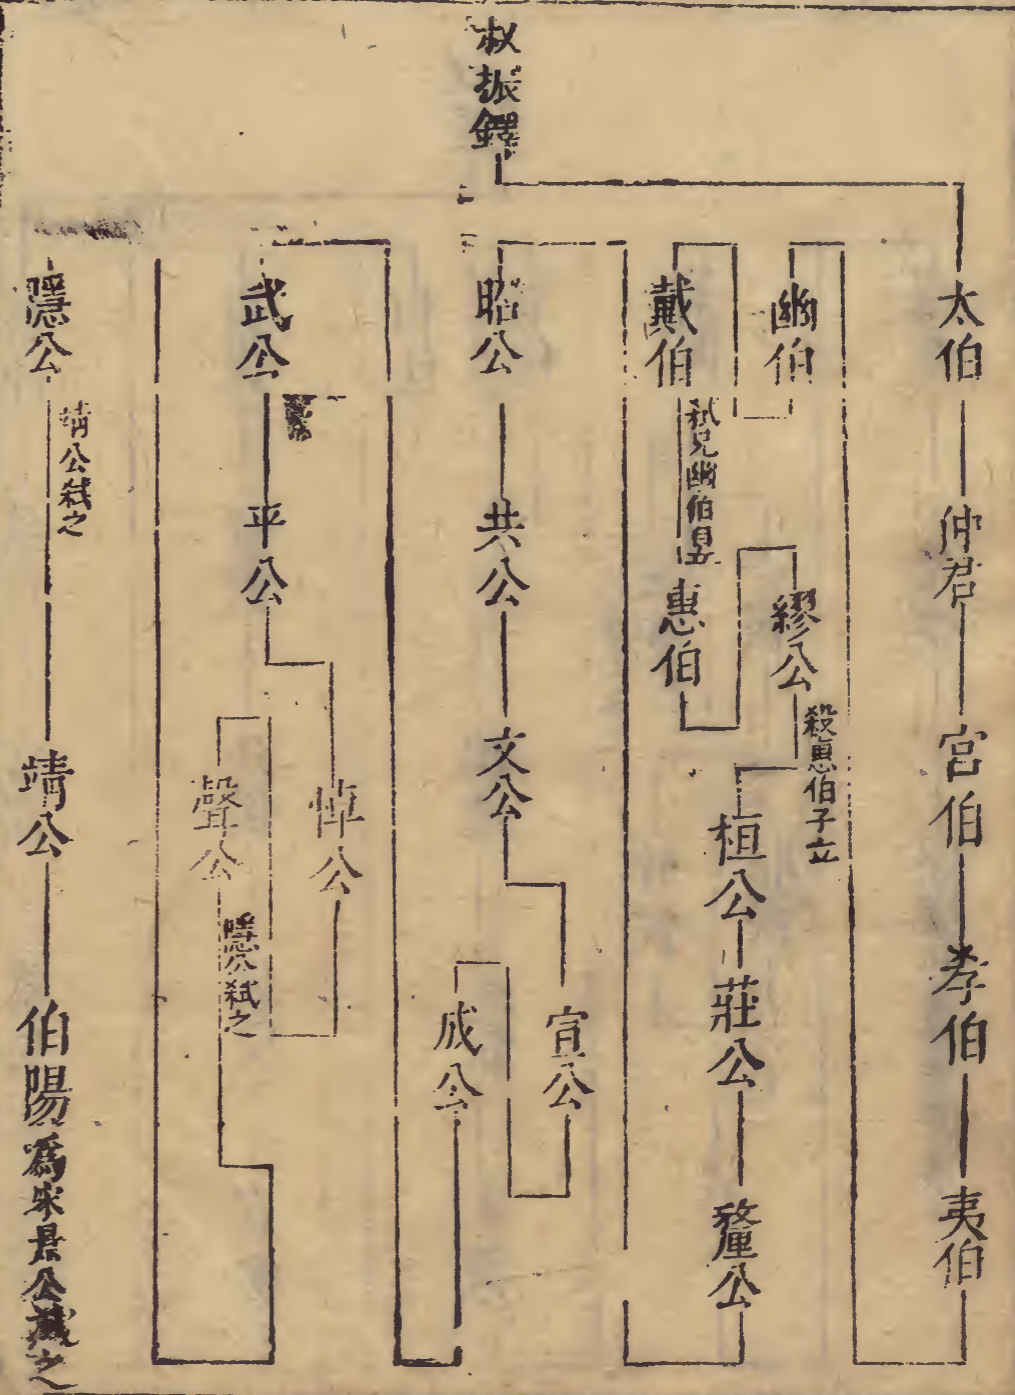 叔振鐸
太伯
仲君
宮伯
孝伯
夷伯
幽伯
戴伯
弑兄幽伯自立
惠伯
繆公
殺惠伯子立
桓公
莊公
釐公
昭公
共公
文公
宣公
成公
武公
平公
悼公
聲公
隱公弑之
隱公
靖公弑之
靖公
伯陽爲宋景公滅之